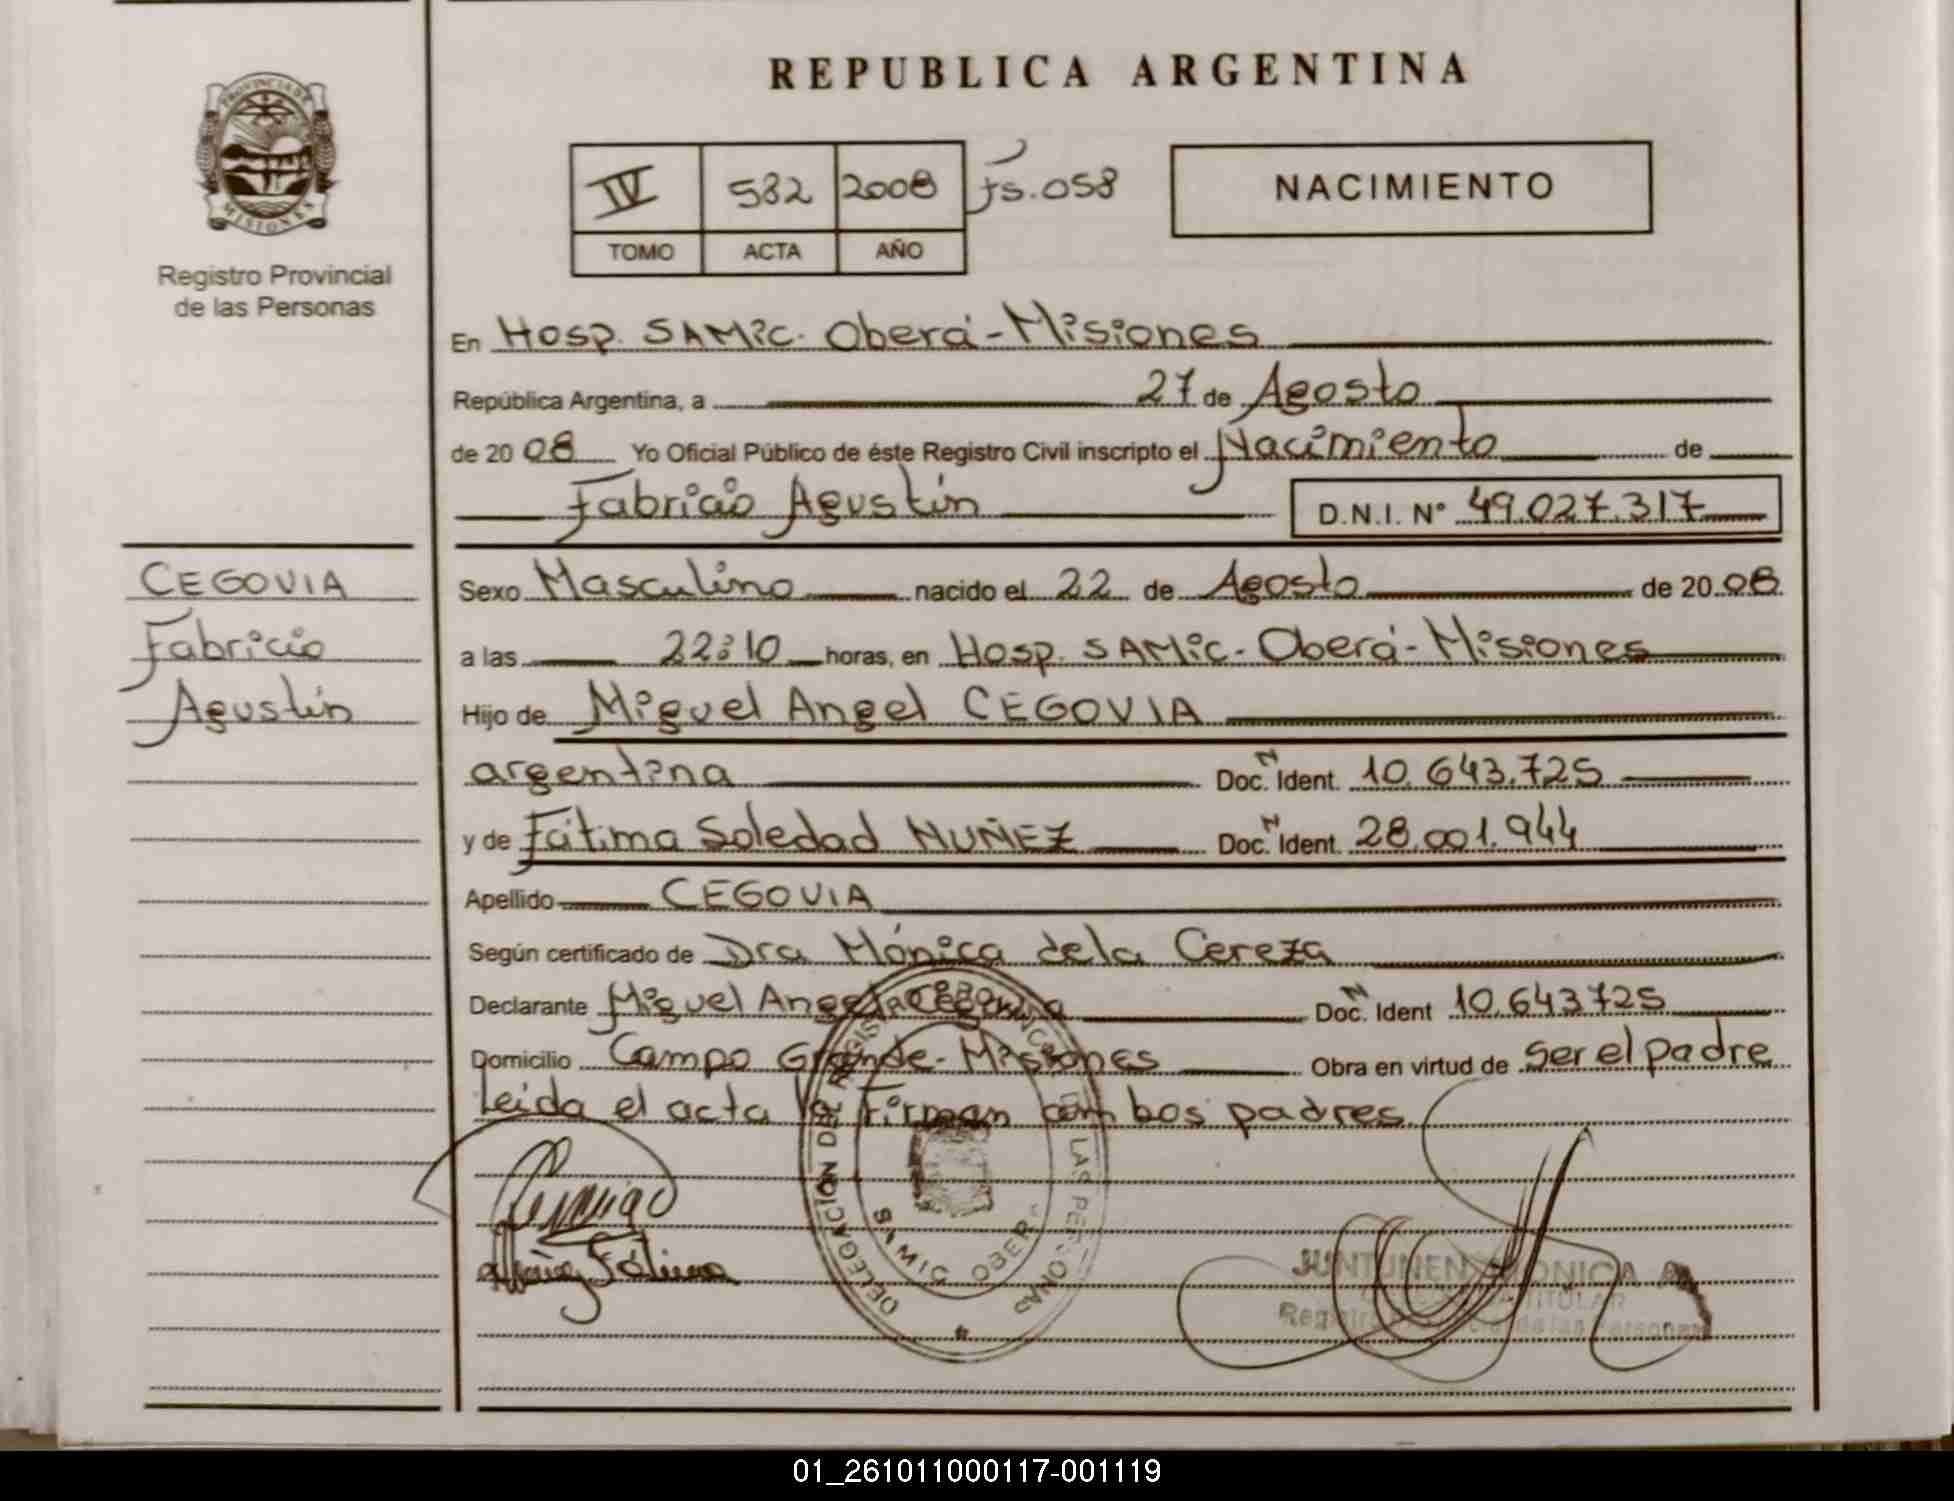 PROVINCIA DE
MISIONES
Registro Provincial
de las Personas
REPUBLICA ARGENTINA
IV 582 2008 fs.058
TOMO ACTA AÑO
NACIMIENTO
En Hosp. SAMic. Oberá-Misiones
República Argentina, a 27 de Agosto
de 2008 Yo Oficial Público de éste Registro Civil inscripto el Nacimiento de
Fabricio Agustín D.N.I. N° 49.027.317
CEGOVIA
Fabricio
Agustín
Sexo Masculino nacido el 22 de Agosto de 2008
a las 22:10 horas, en Hosp. SAMic-Oberá-Misiones
Hijo de Miguel Angel CEGOVIA
argentina Doc. N Ident. 10.643.725
y de Fátima Soledad NUÑEZ Doc. N Ident. 28.001.944
Apellido CEGOVIA
Según certificado de Dra Mónica dela Cereza
Declarante Miguel Angel Cegovia Doc. N Ident 10.643725
Domicilio Campo Grande-Misiones Obra en virtud de ser el padre
Leida el acta la Firman ambos padres.
DELEGACION DEL REGISTRO PROVINCIAL DE LAS PERSONAS
SAMIC OBERA
Fátima
JUNTUNEN MONICA
TITULAR
Registro Provincial de las Personas
01_261011000117-001119